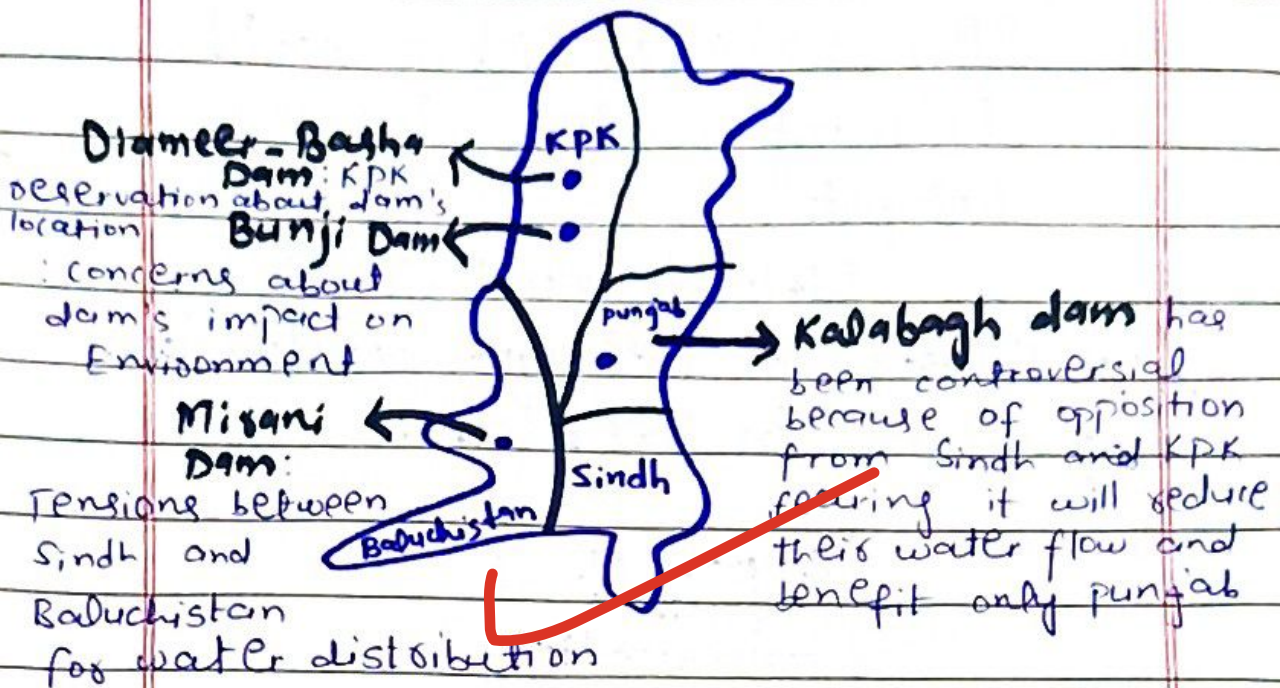 Diameer-Basha
Dam: KPK
reservation about dam's
location
Bunji Dam
: concerns about
dam's impact on
Environment
Mirani
Dam:
Tensions between
Sindh and
Baluchistan
for water distribution
KPK
punjab
Sindh
Baluchistan
Kalabagh dam has
been controversial
because of opposition
from Sindh and KPK
fearing it will reduce
their water flow and
benefit only punjab